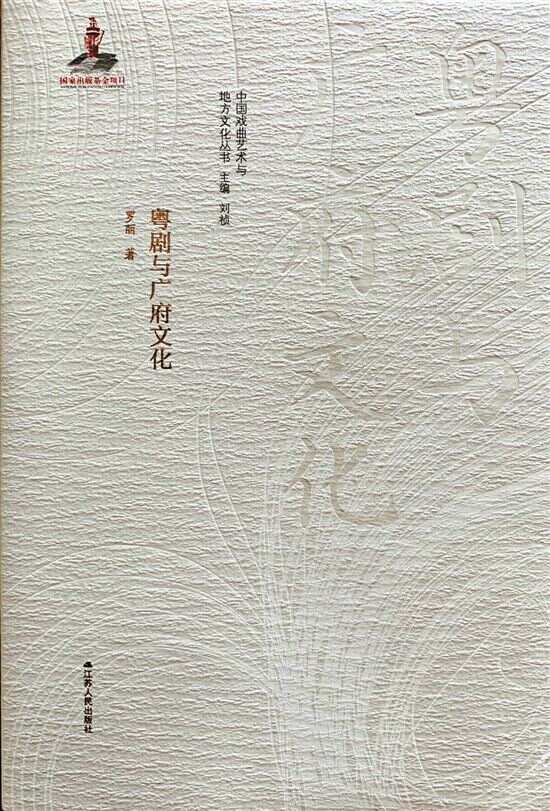 国家出版基金项目
中国戏曲艺术与
地方文化丛书 主编 刘祯
粤剧与广府文化
罗丽 著
粤剧与
广府文化
江苏人民出版社